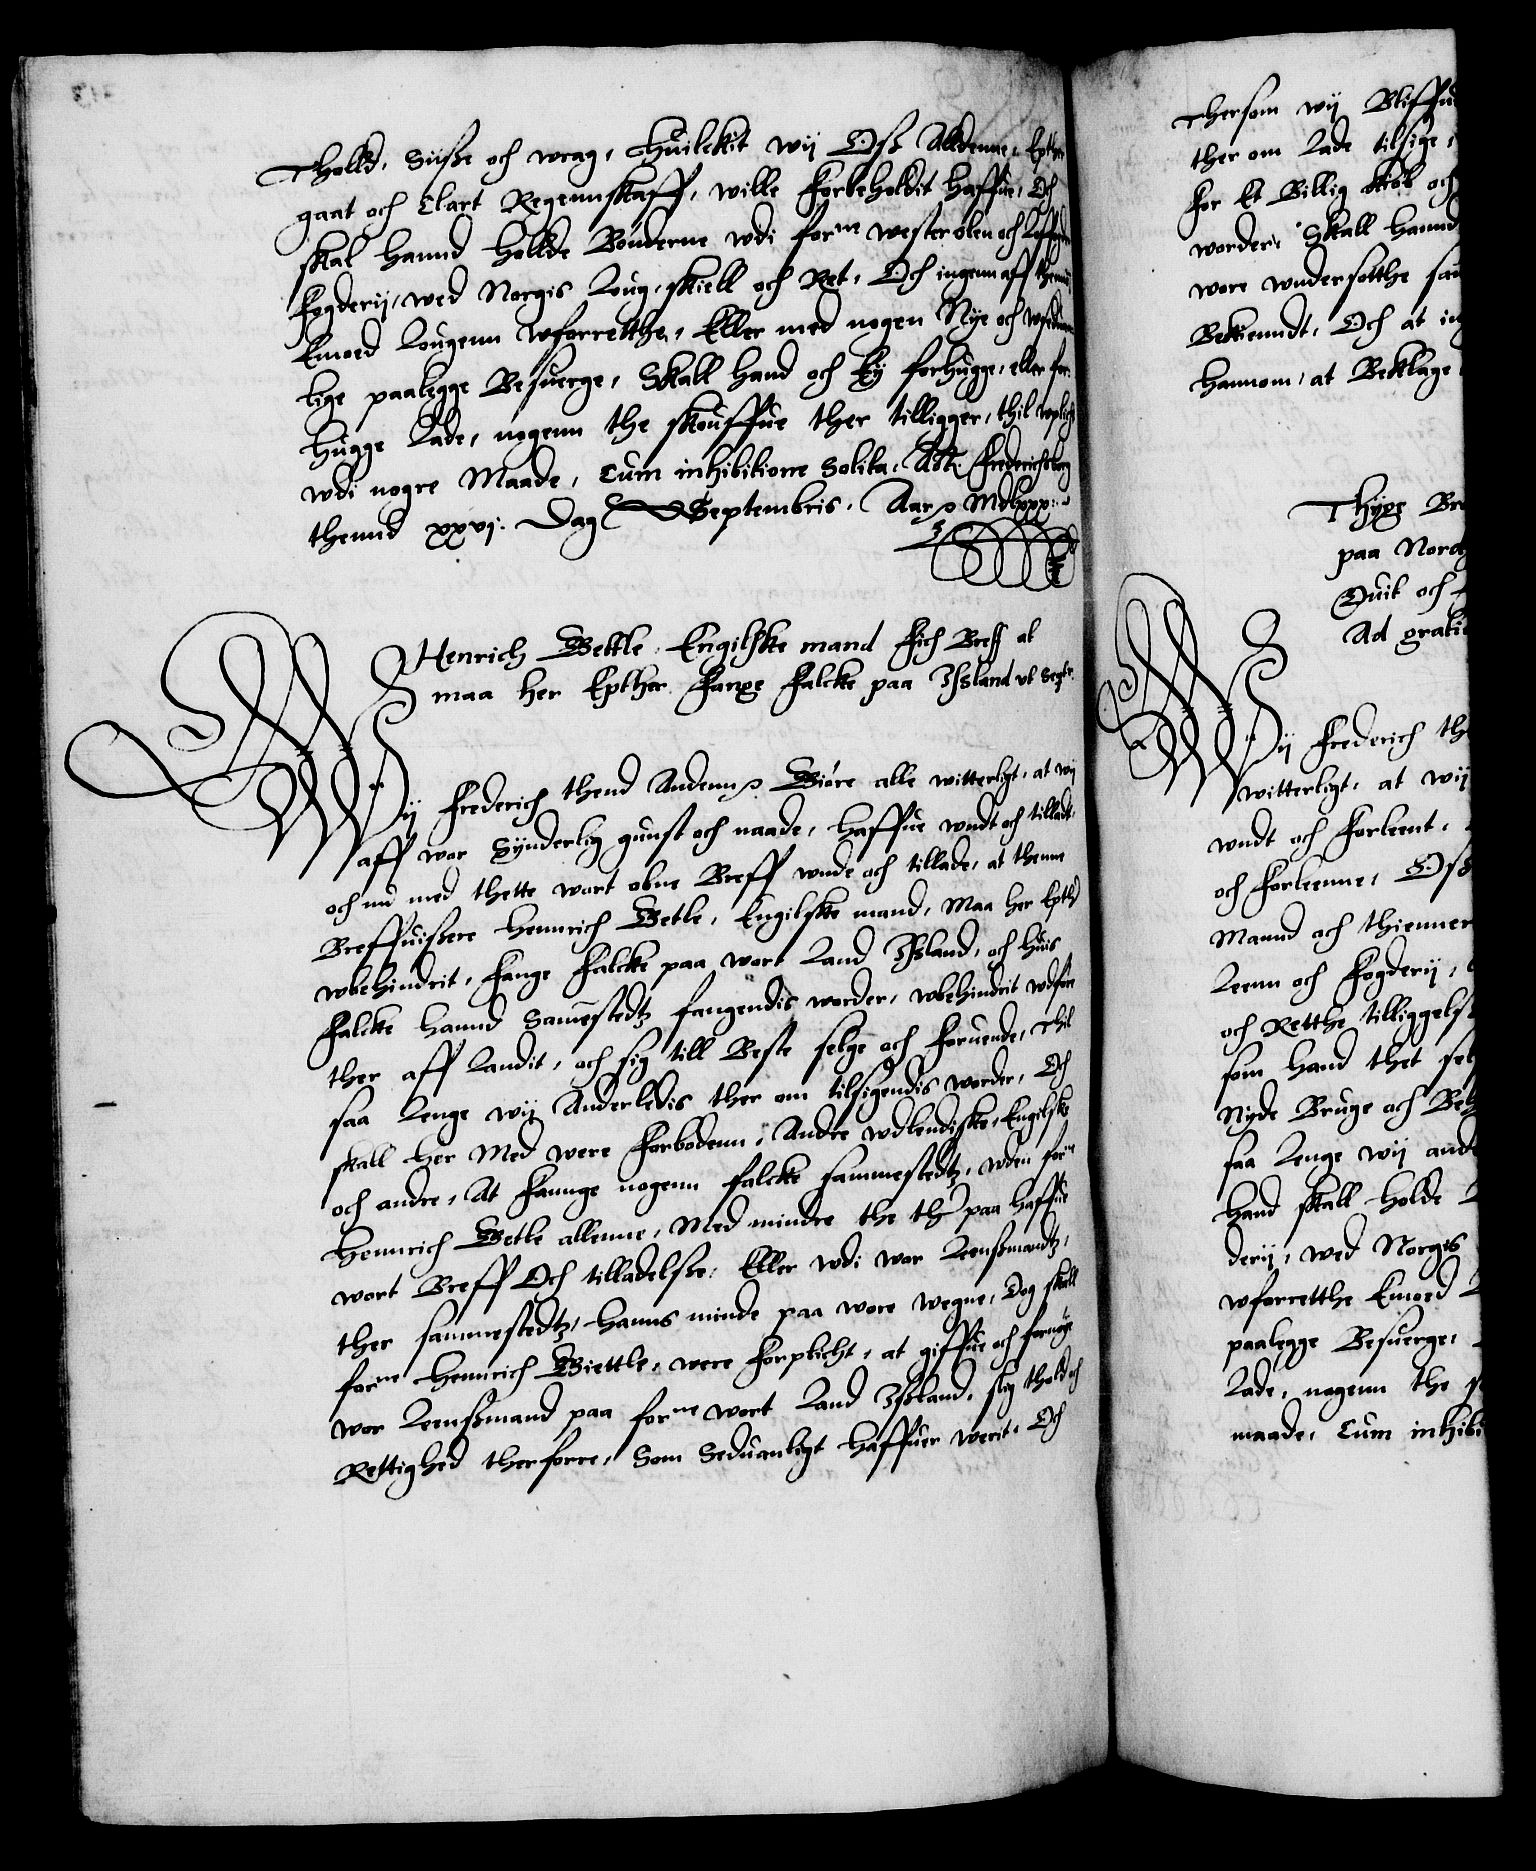 Tholld, Siisze och wrag, Huilckit wij Osz Alldenne, Epther
gaat och Clart Regennskaff, wille Forbeholdit haffue, Och
skal hannd hollde Bonderne wdi for.ne westerolen och
Fogderij, wed Norgis Loug, skiell och Ret, Och ingenn aff thennom
Emoed Lougenn wforretthe, Eller med nogen Nye och wsed-
lige paalegge Besuerge, Skall hand och Ey forhugge, eller for-
hugge Lade, nogenn the skouffue ther tilligger, thil wplicht
wdi nogre Maade, Cum inhibitione solita, Act. Frederichsborg
thennd xxvj. Dag Septembris, Aar &c. Mdlxxx.
Henrich Bettle Engilske mand Fich Breff at
maa her Epther Fange Falcke paa Issland vt Sept.
Wij Frederich thend Andenn &c. Giöre alle witterligt, at wij
aff wor Synderlig gunst och naade, haffue wndt och tilladt,
och nu med thette wort obne Breff wnde och tillade, at thenne
Breffuiszere Hennrich Betle, Engilske mand, Maa her Epther
wbehindrit, Fange Falcke paa wort Land Issland, och huis
Falcke hannd Sammestedtz fangendis worder, wbehindrit wdføre
ther aff Landit, och sig till Beste selge och Foruende, Thil
saa Lenge wij Anderledis ther om tilsigendis worder, Och
skall her Med were Forbodenn, Andre wdlendiske, Engilske
och andre, At Fannge nogenn Falcke sammestedtz, wden for.ne
Hennrich Betle allenne, Med mindre the ther paa haffue
wort Breff Och tilladelsze, Eller wdi wor Leenszmandtz,
ther sammestedtz, Hanns minde paa wore wegne, Dog skall
for.ne Hennrich Biettle, were Forplicht, at giffue och fornøye
wor Leenszmand paa for.ne wort Land Iszland, slig thold och
Rettighed therforre, Som Seduanligt haffuer werit, Och
Thersom wij Bliffue
ther om Lade tilsige,
for Et Billig skiøb och
worder, Skall hannd
wore wndersotthe
Bekiendt, Och at
hannom, at Beklage
Thyge
paa
Quit och
Ad grati
Wij Frederich
witterligt, at wij
wndt och Forleent,
och Forleenne, Osz
Mannd och thienner
Leenn och Fogderij,
och Retthe tilliggelsze
som hand thet
Nyde Bruge och
saa Lenge wij
hand skall holde
derij, wed Norgis
wforretthe Emoed
paalegge Besuerge,
Lade, nogenn the
maade, Cum inhibi